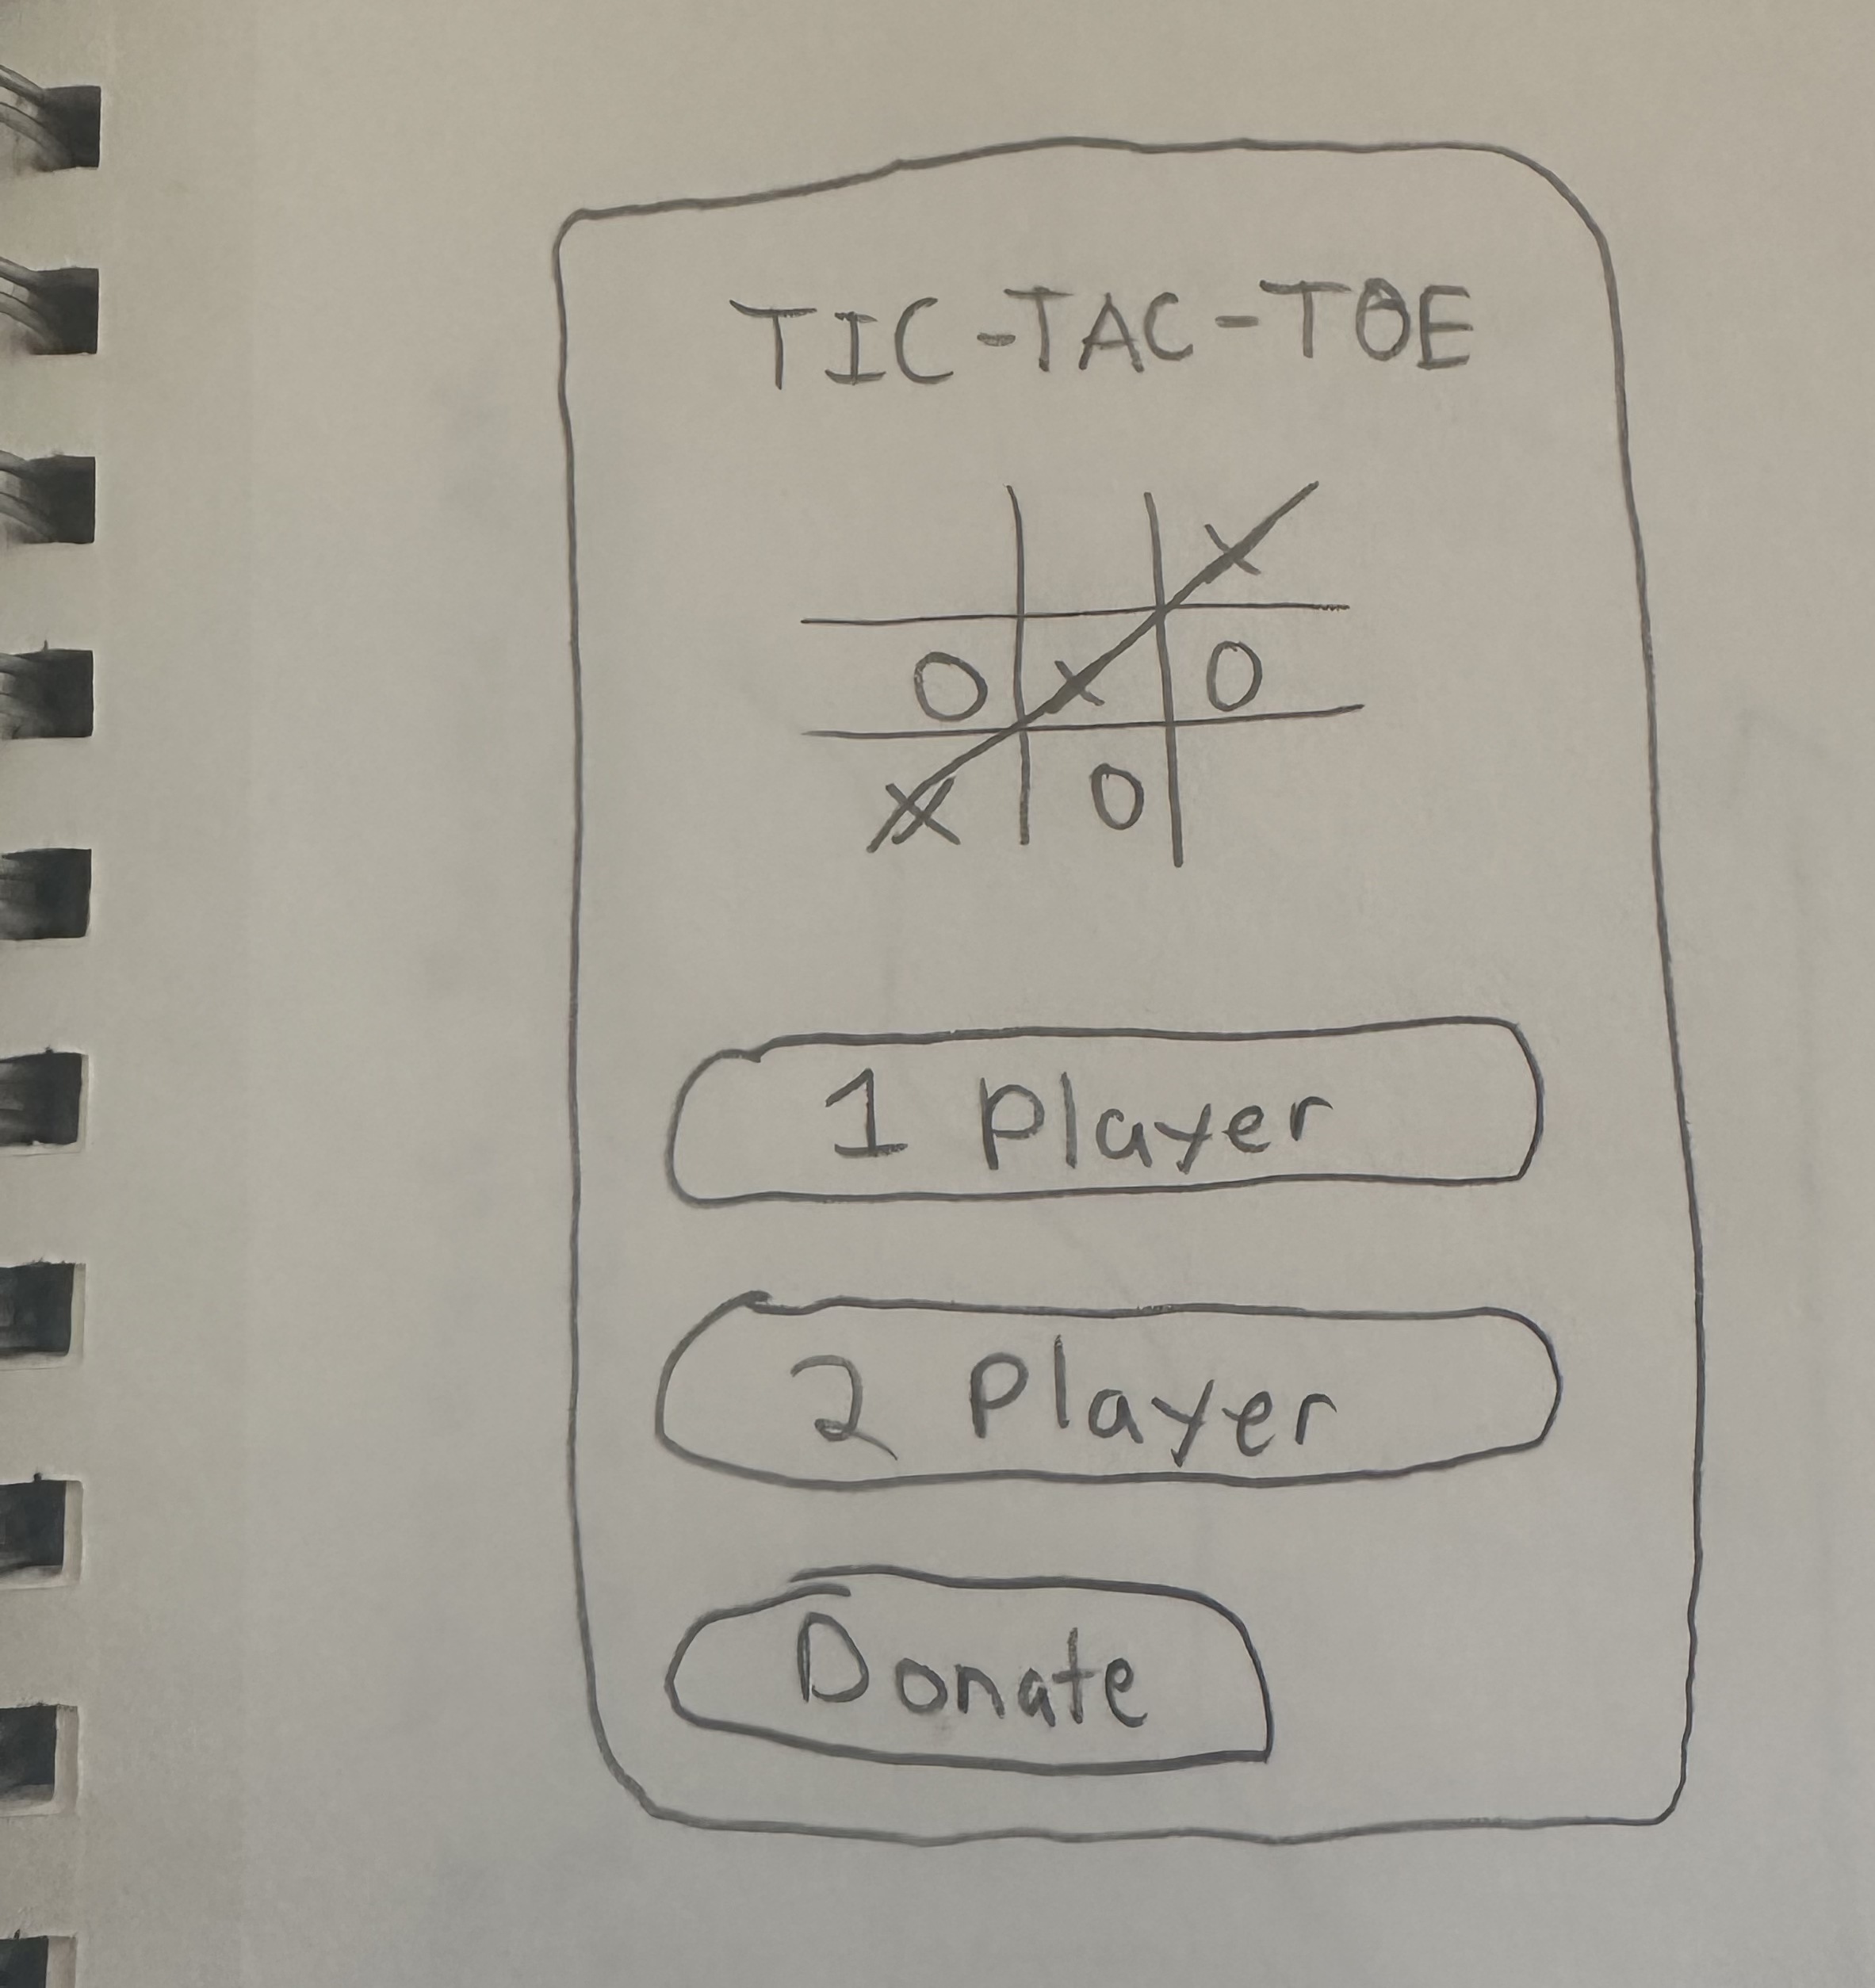 TIC-TAC-TOE
X
O X O
X O
1 Player
2 Player
Donate